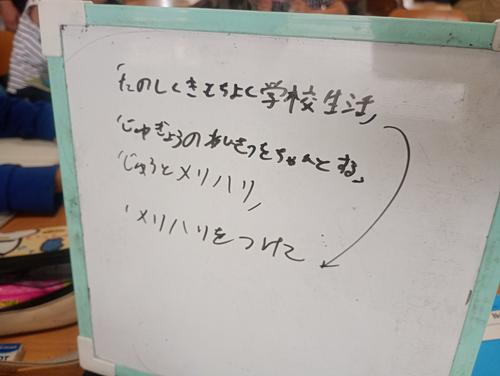 「たのしくきもちよく学校生活」
「じゅぎょうのあいさつをちゃんとする」
「じゆうとメリハリ」
「メリハリをつけて